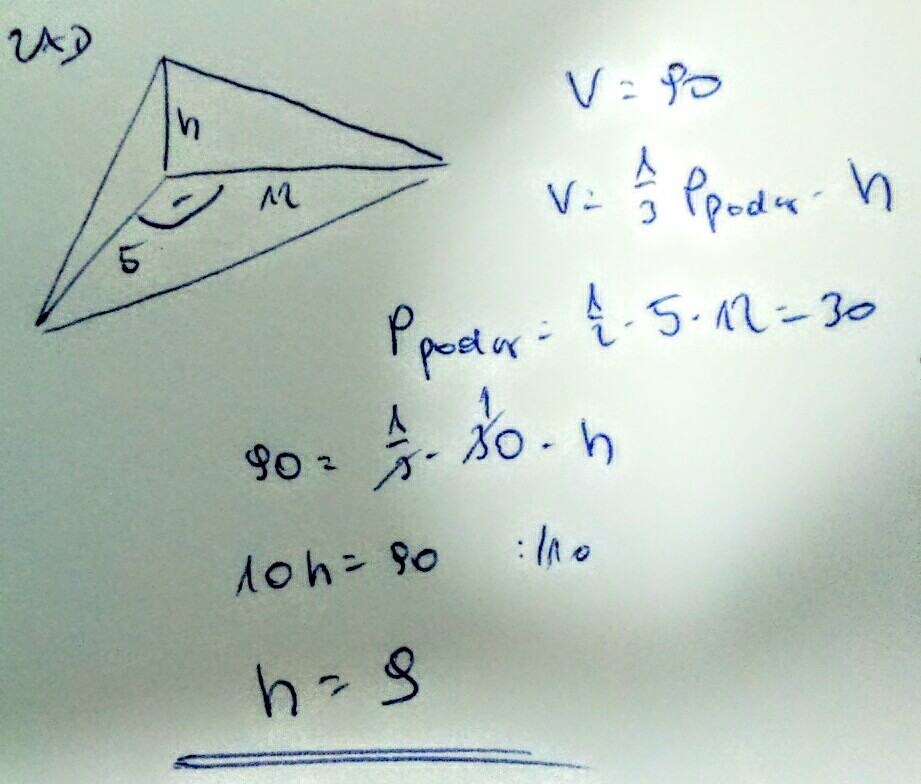 ZAD
h
12
5
V = 90
V = 1/3 Ppodst · h
Ppodst = 1/2 · 5 · 12 = 30
90 = 1/3 · 30 · h
1
10h = 90 :/10
h = 9